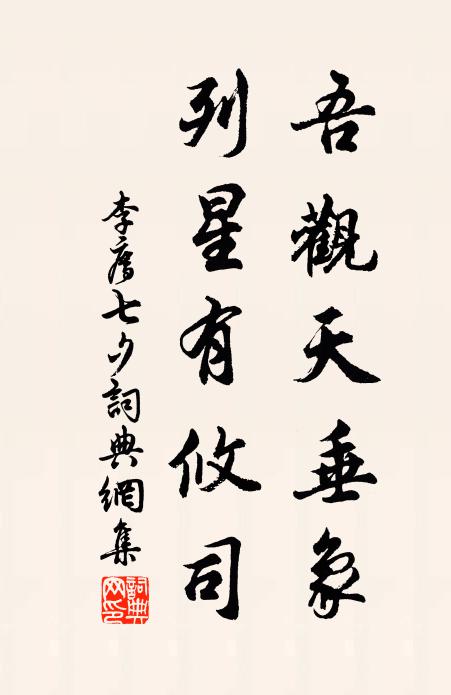 吾觀天垂象
列星有攸司
李廌七夕詞典網集
詞典網印